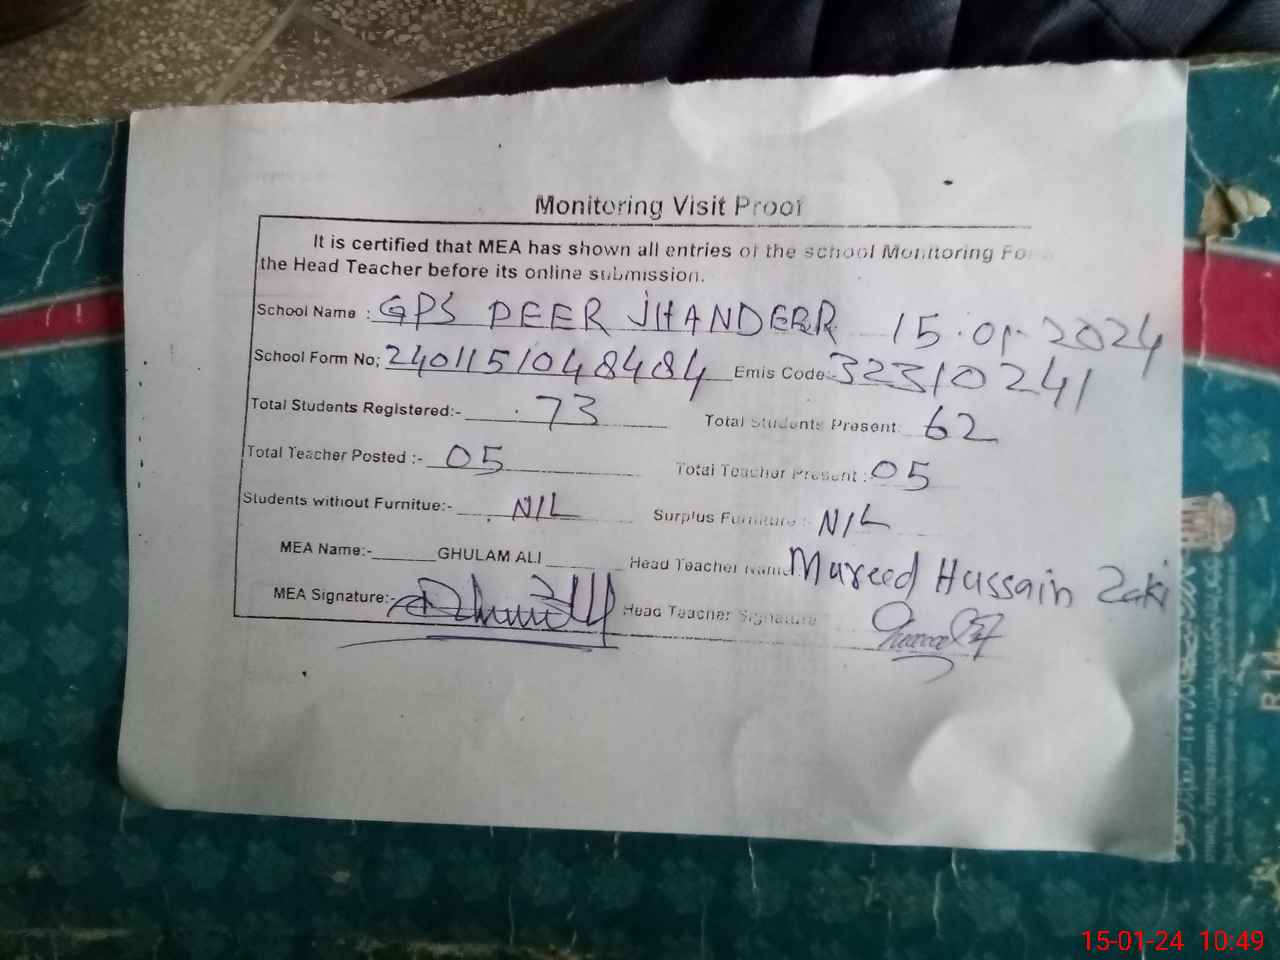 Monitoring Visit Proof
It is certified that MEA has shown all entries of the school Monitoring Fo
the Head Teacher before its online submission.
School Name : GPS PEER JHANDEER 15.01.2024
School Form No; 2401151048484 Emis Code:- 32310241
Total Students Registered:- 73 Total Students Present: 62
Total Teacher Posted :- 05 Total Teacher Present : 05
Students without Furnitue:- NIL Surplus Furniture :- NIL
MEA Name:- GHULAM ALI Head Teacher Name Mureed Hussain Zaki
MEA Signature:- Head Teacher Signature
R.14
15-01-24 10:49